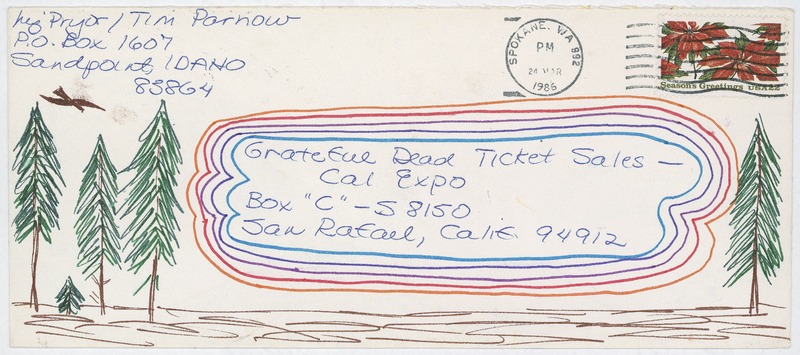 Pryor / Tim Parnow
P.O. Box 1607
Sandpoint, IDAHO
83864
SPOKANE, WA 992
PM
24 MAR
1986
Season's Greetings USA22
Grateful Dead Ticket Sales —
Cal Expo
Box "C" - S 8150
San Rafael, Calif. 94912